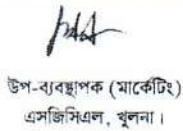 উপ-ব্যবস্থাপক (মার্কেটিং)
এসজিসিএল, খুলনা।